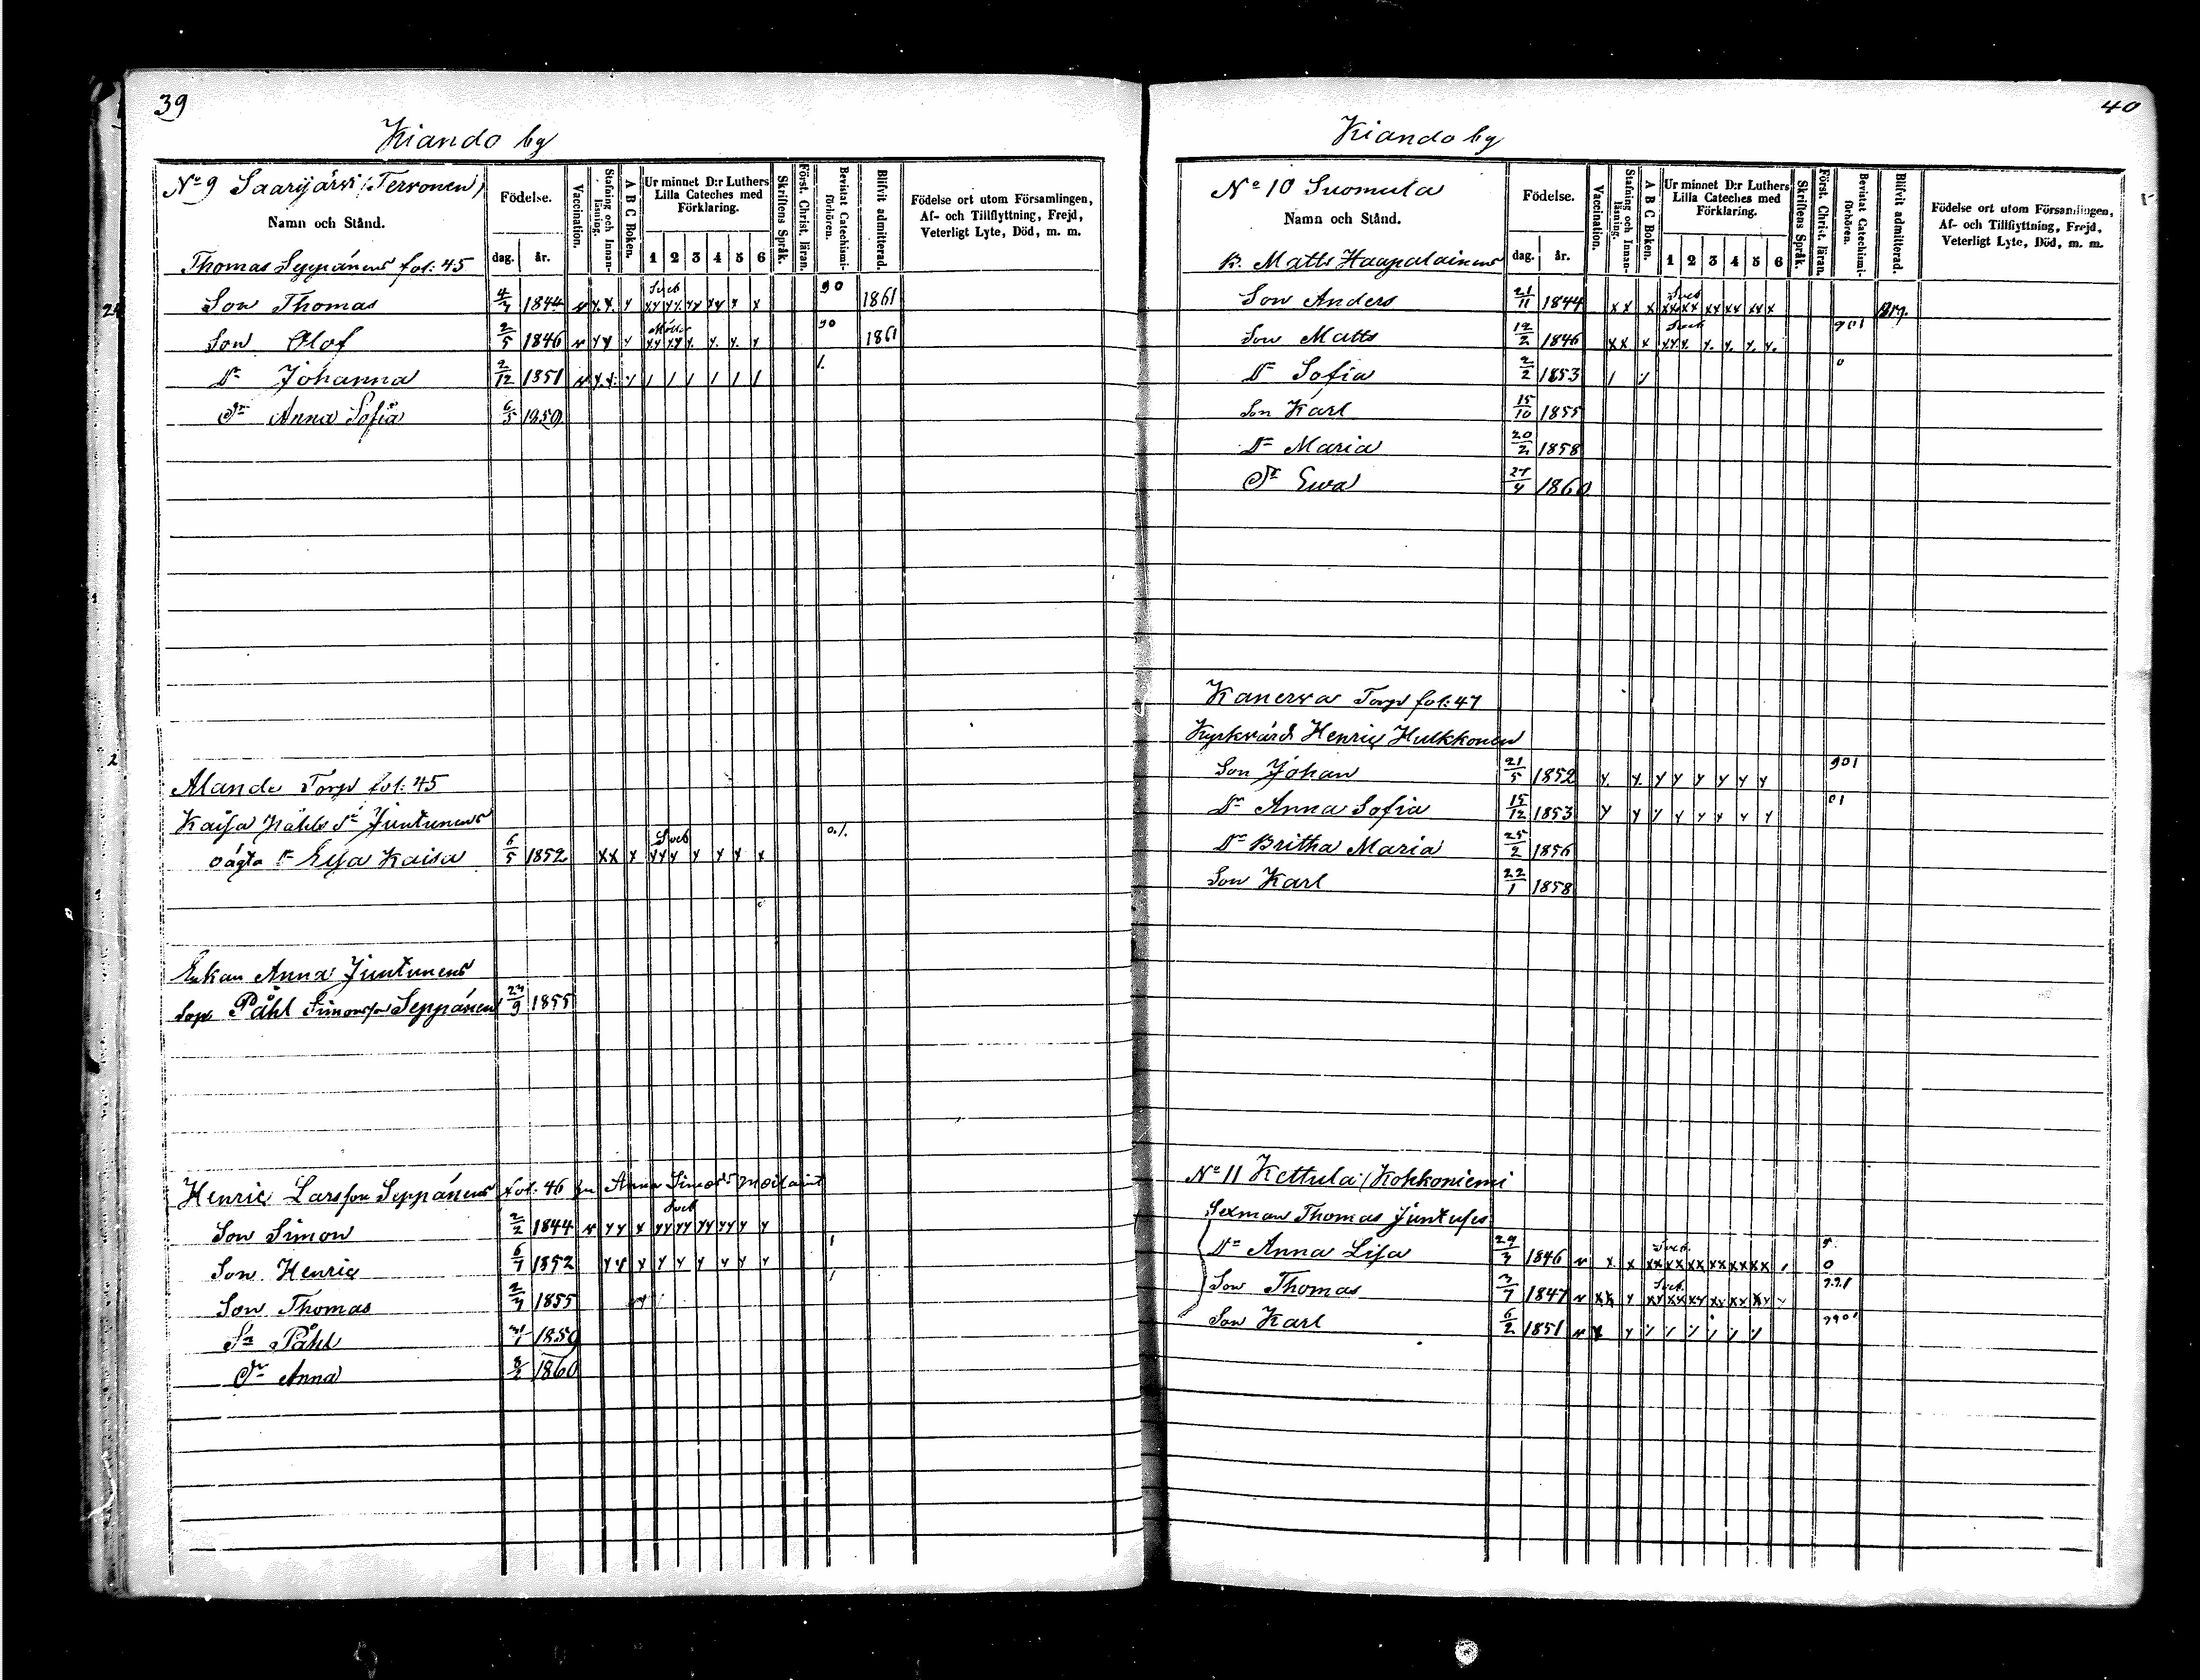 39
Kiando by
No 9 Saarijärvi (Tervonen)
Namn och Stånd.
Födelse.
dag. år.
Vaccination.
Stafning och Innanläsning.
A B C Boken.
Ur minnet D:r Luthers Lilla Cateches med Förklaring.
1 2 3 4 5 6
Skriftens Språk.
Först. Christ. läran.
Bevistat Catechismiförhören.
Blifvit admitterad.
Födelse ort utom Församlingen, Af- och Tillflyttning, Frejd, Veterligt Lyte, Död, m. m.
Thomas Seppänens fol: 45
Son Thomas 4/3 1844 v x x x xx xx xx xx x x 90 1861
Son Olof 2/5 1846 v x x x xx xx x x x x 90 1861
Dr Johanna 2/12 1851 v x x x / / / / / / 1.
Dr Anna Sofia 6/5 1859
Alande Torp fol: 45
Kaisa Påhls Dr Juntunens
oägta Dr Eva Kaisa 6/5 1852 xx x xx x x x x x 0./.
Enkan Anna Juntunens
Son Påhl Simonsson Seppänen 23/9 1855
Henric Larsson Seppänens fol: 46 Anna Simonsdr
Son Simon 2/2 1844 v x x x xx xx xx xx x x
Son Henric 6/7 1852 x x x x x x x x x
Son Thomas 2/7 1855
Sn Påhl 31/1 1859
Dr Anna 8/2 1860
40
Kiando by
No 10 Suomula
Namn och Stånd.
Födelse.
dag. år.
Vaccination.
Stafning och Innanläsning.
A B C Boken.
Ur minnet D:r Luthers Lilla Cateches med Förklaring.
1 2 3 4 5 6
Skriftens Språk.
Först. Christ. läran.
Bevistat Catechismiförhören.
Blifvit admitterad.
Födelse ort utom Församlingen, Af- och Tillflyttning, Frejd, Veterligt Lyte, Död, m. m.
B. Matts Haapalainens
Son Anders 21/11 1844 x x x xx xx xx xx xx x
Son Matts 12/2 1846 xx x xx x x x x x 901
Dr Sofia 2/2 1853 / / 0
Son Karl 15/10 1855
Dr Maria 20/2 1858
Dr Ewa 27/4 1860
Kanerva Torp fol: 47
Kyrkvärd Henric Hulkkonen
Son Johan 21/5 1852 x x x x x x x x 901
Dr Anna Sofia 15/12 1853 x x x x x x x x 01
Dr Britha Maria 25/2 1856
Son Karl 22/1 1858
No 11 Kettula (Kohkoniemi
Sexman Thomas Juntuses
Dr Anna Lisa 29/3 1846 v x x xx xx xx xx xx xx
Son Thomas 3/7 1847 v xx x xx xx xx xx xx xx
Son Karl 6/2 1851 v x x / / / / / /